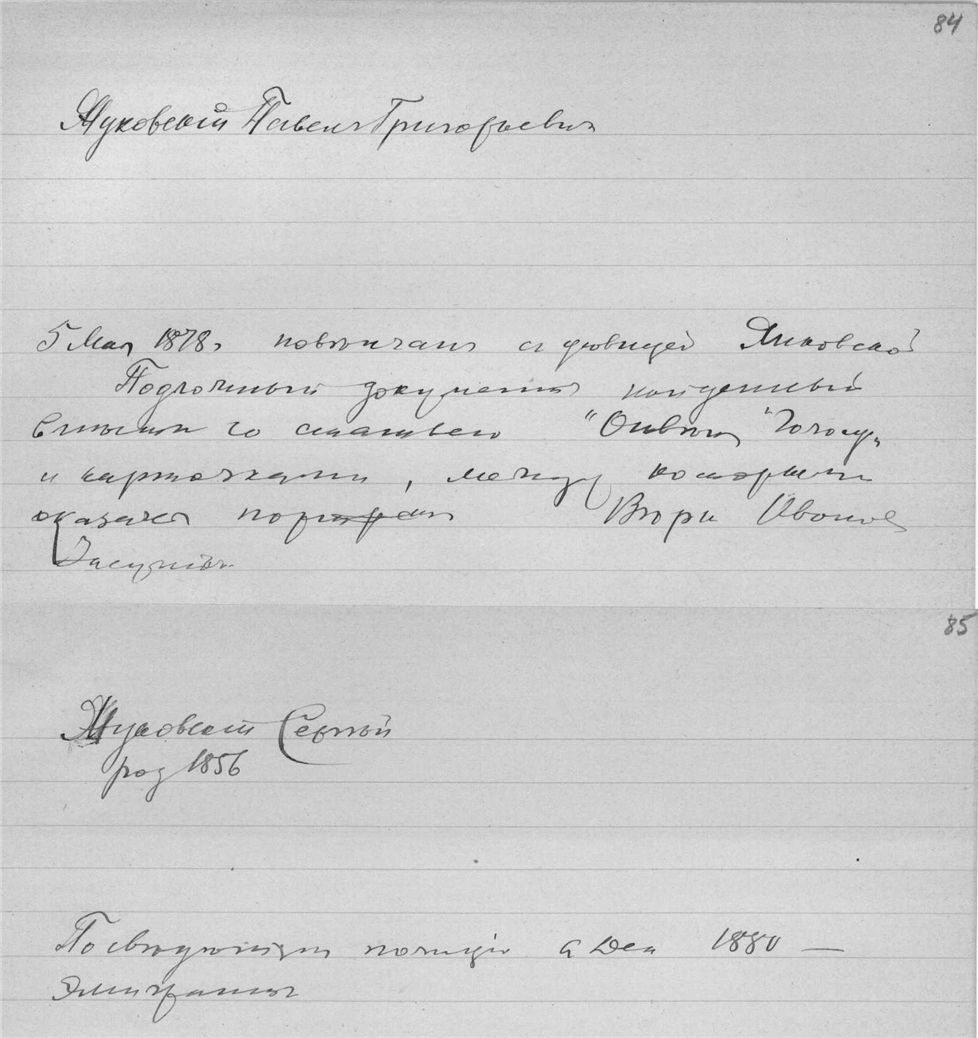 84
Жуковскій Павелъ Григорьевичъ
5 Мая 1878 г. повѣнчанъ съ дѣвицей Янковской
Подложный документъ найденный
вмѣстѣ со статьею "Отвѣтъ "Голосу"
и карточками, между которыми
оказался портретъ Вѣры Ивановны
Засуличъ
85
Жуковскій Сергѣй
род 1856
По свѣдѣніямъ полиціи 6 Дек 1880 —
Эмигрантъ